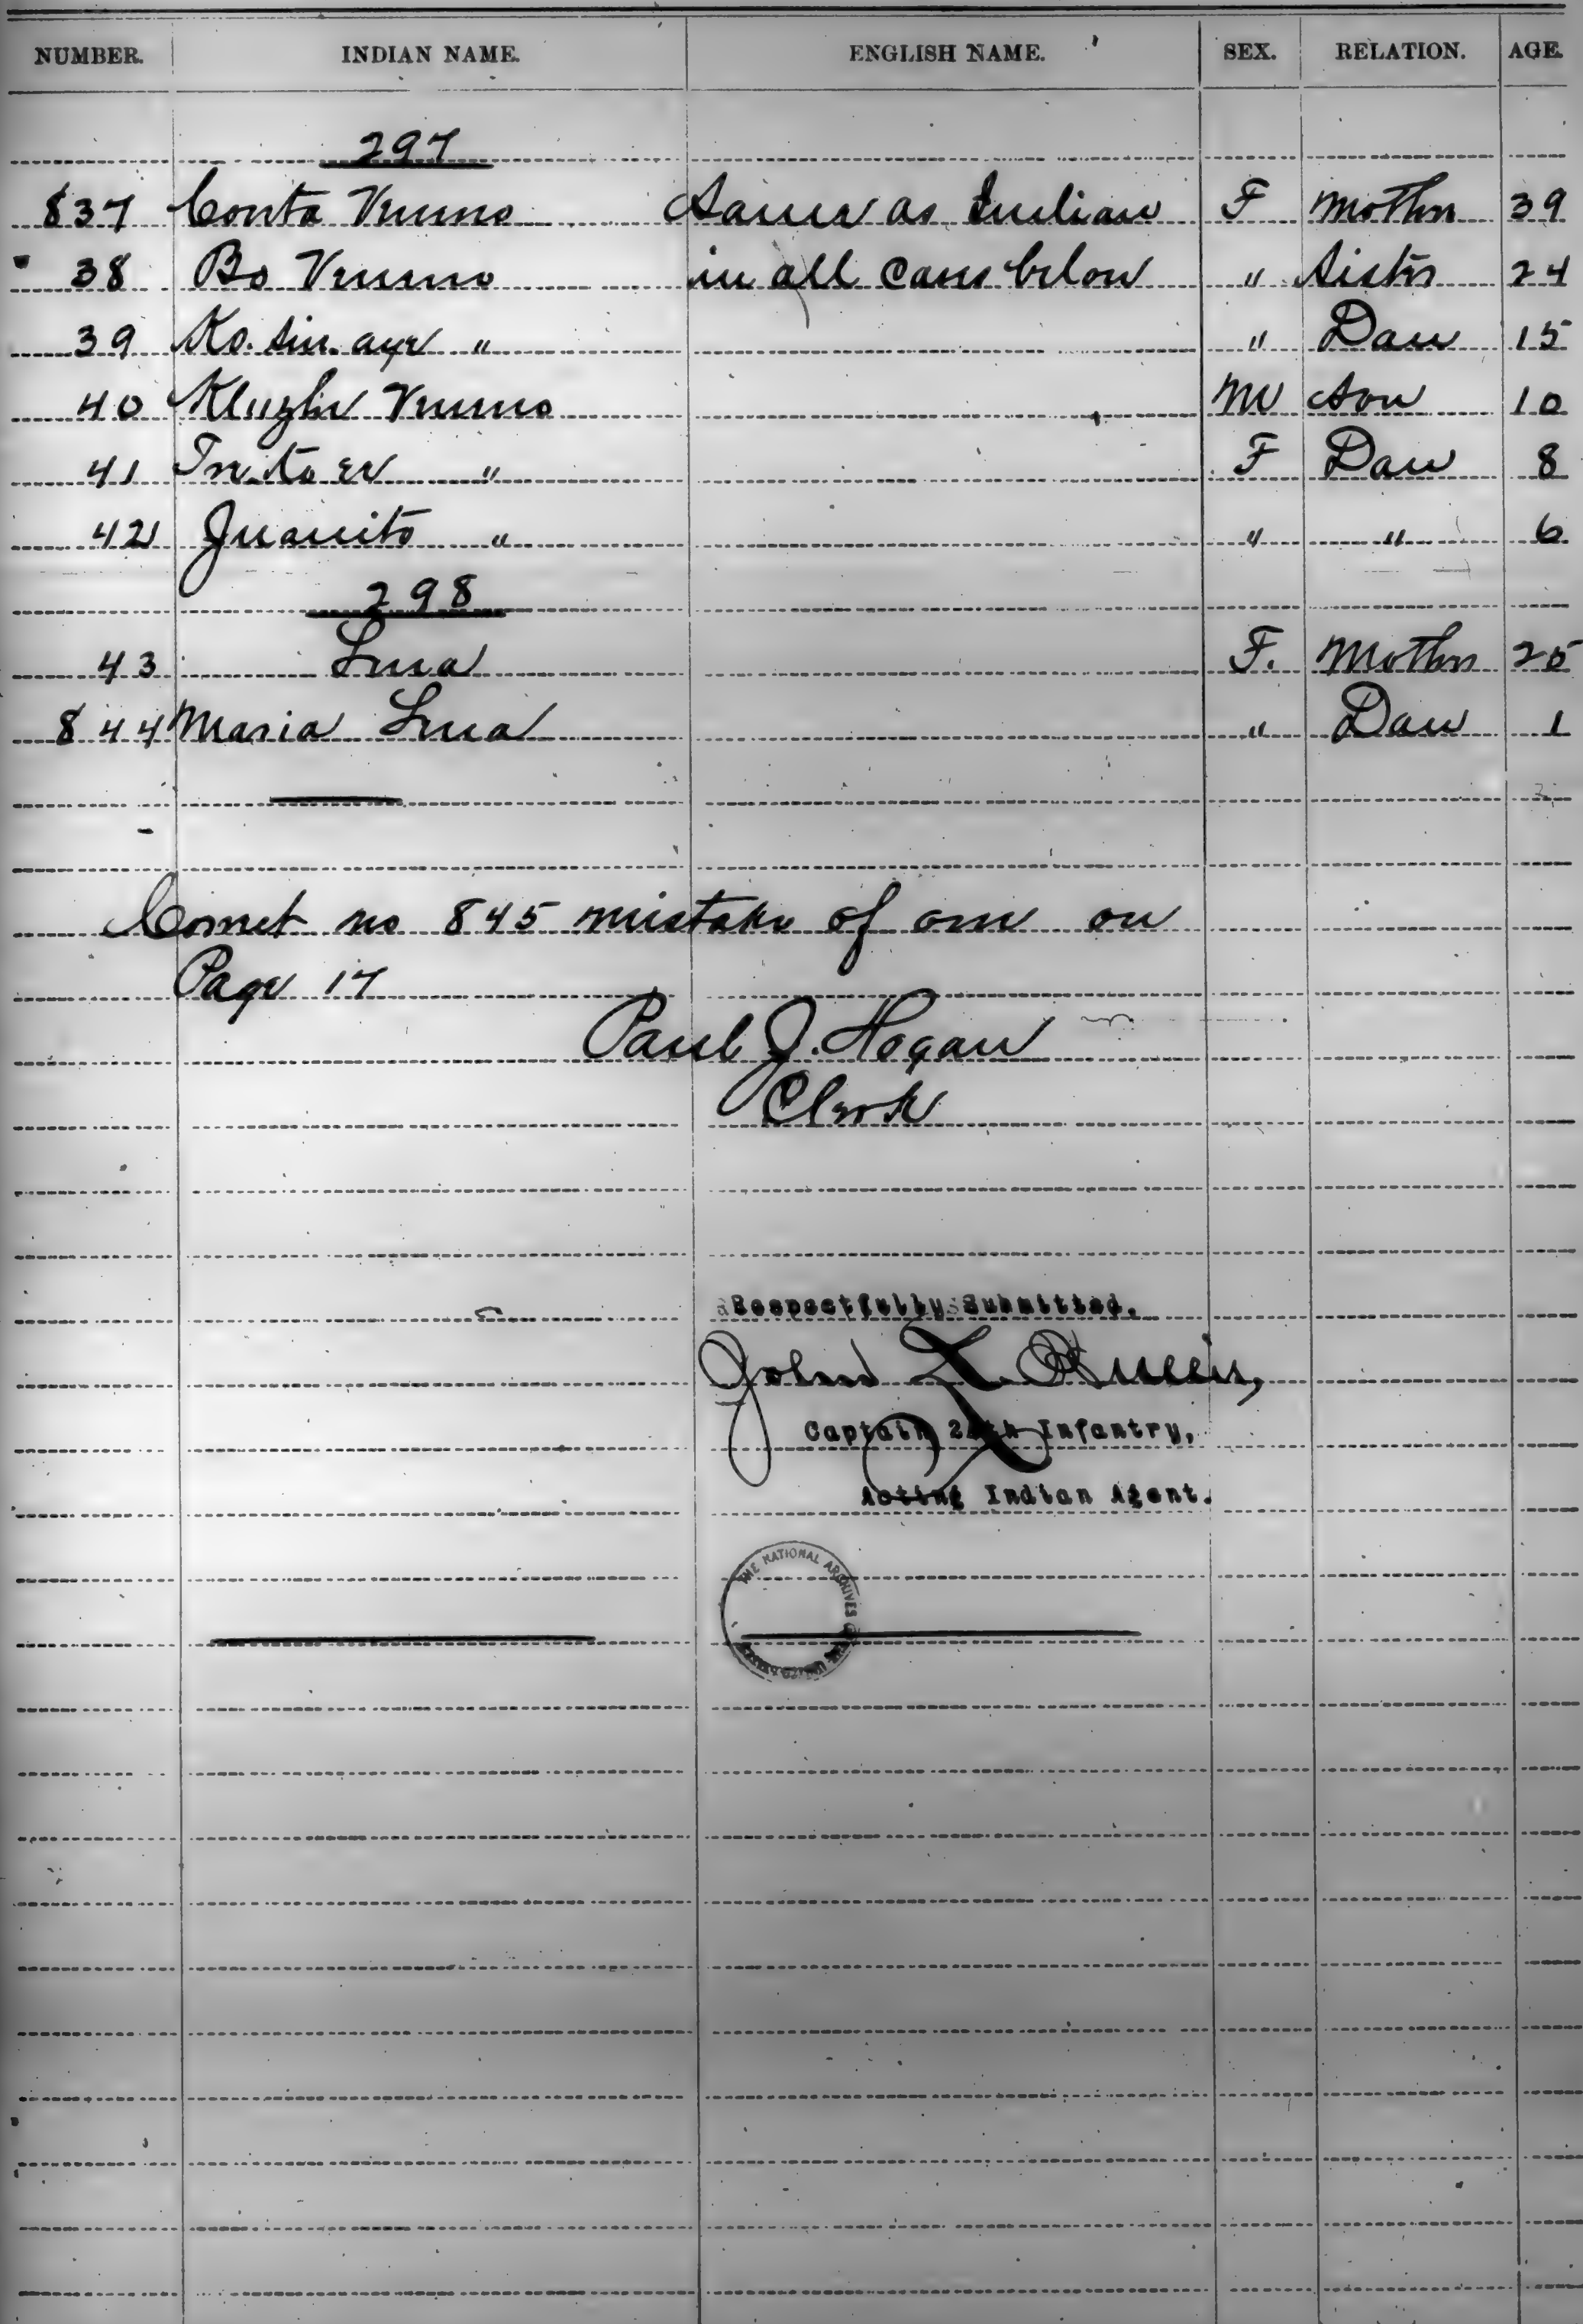 NUMBER. INDIAN NAME. ENGLISH NAME. SEX. RELATION. AGE.
297
837 Conta Same as Indian F Mother 39
38 Bo in all cases below " Sister 24
39 " " Dau 15
40 M Son 10
41 " F Dau 8
42 Juanito " " " 6
298
43 F. Mother 25
844 Maria " Dau 1
Correct no 845 mistake of one on
Page 17
Paul J. Hogan
Clerk
Respectfully Submitted,
John L.
Captain Infantry,
Acting Indian Agent.
THE NATIONAL ARCHIVES